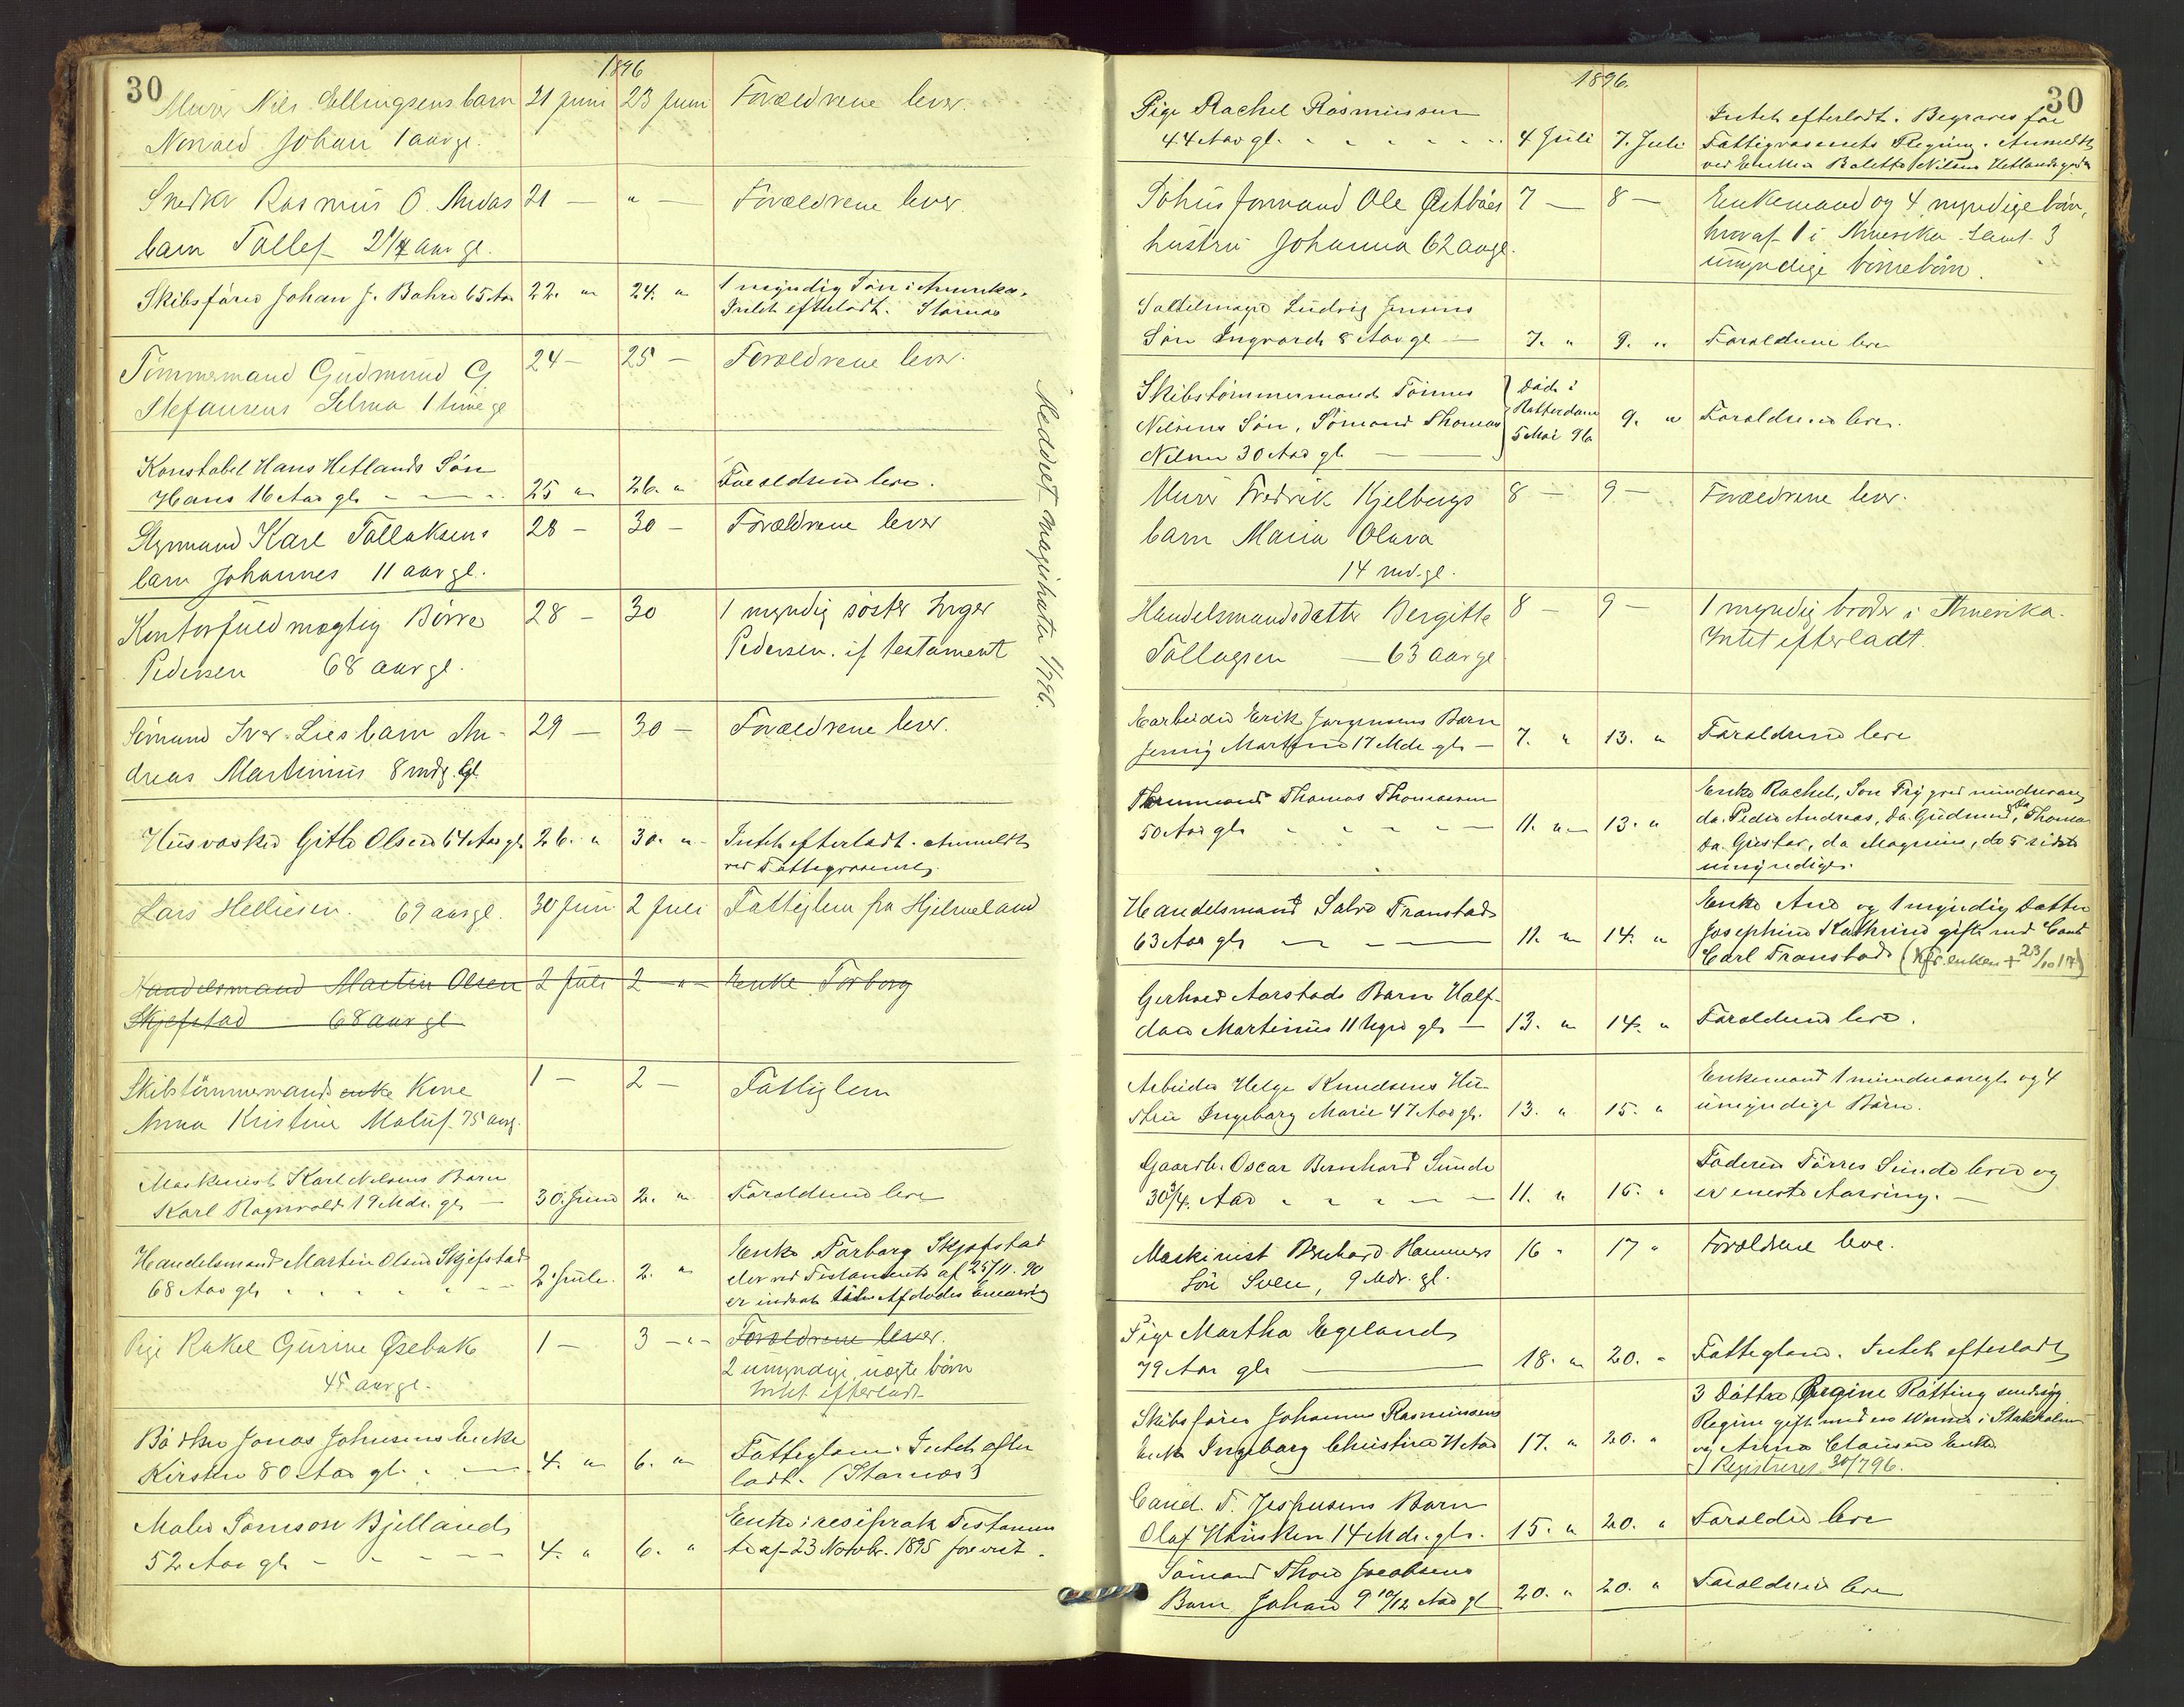 30
1896
Murer Nils Ellingsens barn 21 Juni 23 Juni Forældrene lever.
Johan 1 aar gl.
Snedker Rasmus O. 21 — " — Forældrene lever.
barn Tollef 2 1/4 aar gl.
Skibsfører Johan J. Bahre 65 Aar 22. " 24. " 1 myndig Søn i Amerika.
Intet efterladt.
Tømmermand Gudmund G. 24 — 25 — Forældrene lever.
Stefansens Selma 1 time gl
Konstabel Hans Hetlands Søn
Hans 16 Aar gl. 25 " 26. " Forældrene leve.
Styrmand Karl Tollaksens 28 — 30 — Forældrene lever
barn Johannes 11 aar gl.
Kontorfuldmægtig Børre 28 — 30 1 myndig søster Inger
Pedersen 68 aar gl. Pedersen. if testament
Meddelt magistraten 1/7 96.
Sømand Iver Lies barn An- 29 — 30 — Forældrene lever.
dreas Martinius 8 mdg. Gl.
Husvasker Gitle Olsen 64 Aar gl. 26. " 30. " Intet efterladt. Anmeldt
ved Fattigvæsenet
Lars Helliesen. 69 aar gl. 30 Juni 2 Juli Fattiglem fra Hjelmeland
Handelsmand Martin Olsen 2 Juli 2 — " — Enke Torborg
Skjefstad 68 aar gl
Skibstømmermands enke Kone 1 — 2 — Fattiglem
Anna Kristine Maluf. 75 aarg.
Maskinist Karl Nilsens Barn
Karl Ragnvald 19 Mdr. gl. — 30. Juni 2. " Forældrene leve
Handelsmand Martin Olsen Skjefstad Enke Torborg Skjefstad
68 Aar gl. 2. Juli. 2. " der ved Testamente af 25/11. 90
er indsat Afdødes Enearving
Pige Rakel Gurine Øsebak 1 — 3 — " — Forældrene lever.
45 aar gl. 2 umyndige uægte børn
Intet efterladt
Bødker Jonas Johnsens Enke Fattiglem. Intet efter
Kirsten 80 Aar gl. 4. " 6. " ladt.
Maler Samson Bjelland Enke i
52 Aar gl. 4. " 6. " te af 23 Novbr. 1895 forevist.
1896.
30
Pige Rachel Rasmussen Intet efterladt. Begraves for
44 Aar gl. 4 Juli 7. Juli Fattigvæsenets Regning. Anmeldt
ved Enken Boletta Nilsen Hetlandsgaden
Ole Østbøes 7 — 8 — Enkemand og 4 myndige børn,
hustru Johanna 62 aargl. hvoraf 1 i Amerika samt 3
umyndige børnebørn.
Ludvig Jensens
Søn Ingvard 8 Aar gl — 7. " 9. " Forældrene leve
Skibstømmermand Tønnes Død i
Nilsens Søn, Sømand Thomas Rotterdam 9. " Forældrene leve.
Nilsen 30 Aar gl. 5 Mai 96
Murer Fredrik Kjelbergs 8 — 9 — Forældrene lever.
barn Maria Olava
14 md. gl.
Handelsmandsdatter Bergitte 8 — 9 — 1 myndig broder i Amerika.
Tollagsen — 63 aar gl. Intet efterladt.
Erik Jørgensens Barn
Jenny Martine 17 Mdr. gl. — 7. " 13. " Forældrene leve
Thomas Thomassen Enke Rachel, Søn Trygve mindreaarig
50 Aar gl. 11. " 13. " do. Peder Andreas, do. Gudmund, do Thomas
do. Gustav, do Magnus, de 5 sidste
umyndige.
Handelsmand Salve Transtad Enke Ane og 1 myndig Datter
63 Aar gl. 11. " 14. " Josephine Kathrine gift med Cand
Carl Transtad (Kfr. enken + 23/10 17)
Gerhard Aarstads Barn Half-
dan Martinius 11 Uger gl. — 13. " 14. " Forældrene leve.
Arbeider Helge Knudsens Hu- Enkemand 1 mindreaarig og 4
stru Ingeborg Marie 47 Aar gl. 13. " 15. " umyndige Børn.
Gaardb. Oscar Bernhard Sunde Faderen Tørres Sunde lever og
30 3/4. Aar 11. " 16. " er eneste Arving. —
Maskinist Bernhard Hammers 16 " 17 " Forældrene leve.
Søn Sven, 9 Mdr. gl.
Pige Martha Egeland
79 Aar gl. 18. " 20. " Fattiglem. Intet efterladt
Skibsfører Johannes Rasmussens 3 Døttre
Enke Ingeborg Christine 71 Aar 17. " 20. " Regine gift med en Werner i Stockholm
og Anna Clausen Enke
Registreret 30/7 96.
Cand. T. Jespersens Barn
Olaf Hansken 14 Mdr. gl. 15. " 20. " Forældre leve
Sømand Thore Jacobsens
Barn Johan 9 10/12 Aar gl 20. " 20. " Forældrene leve